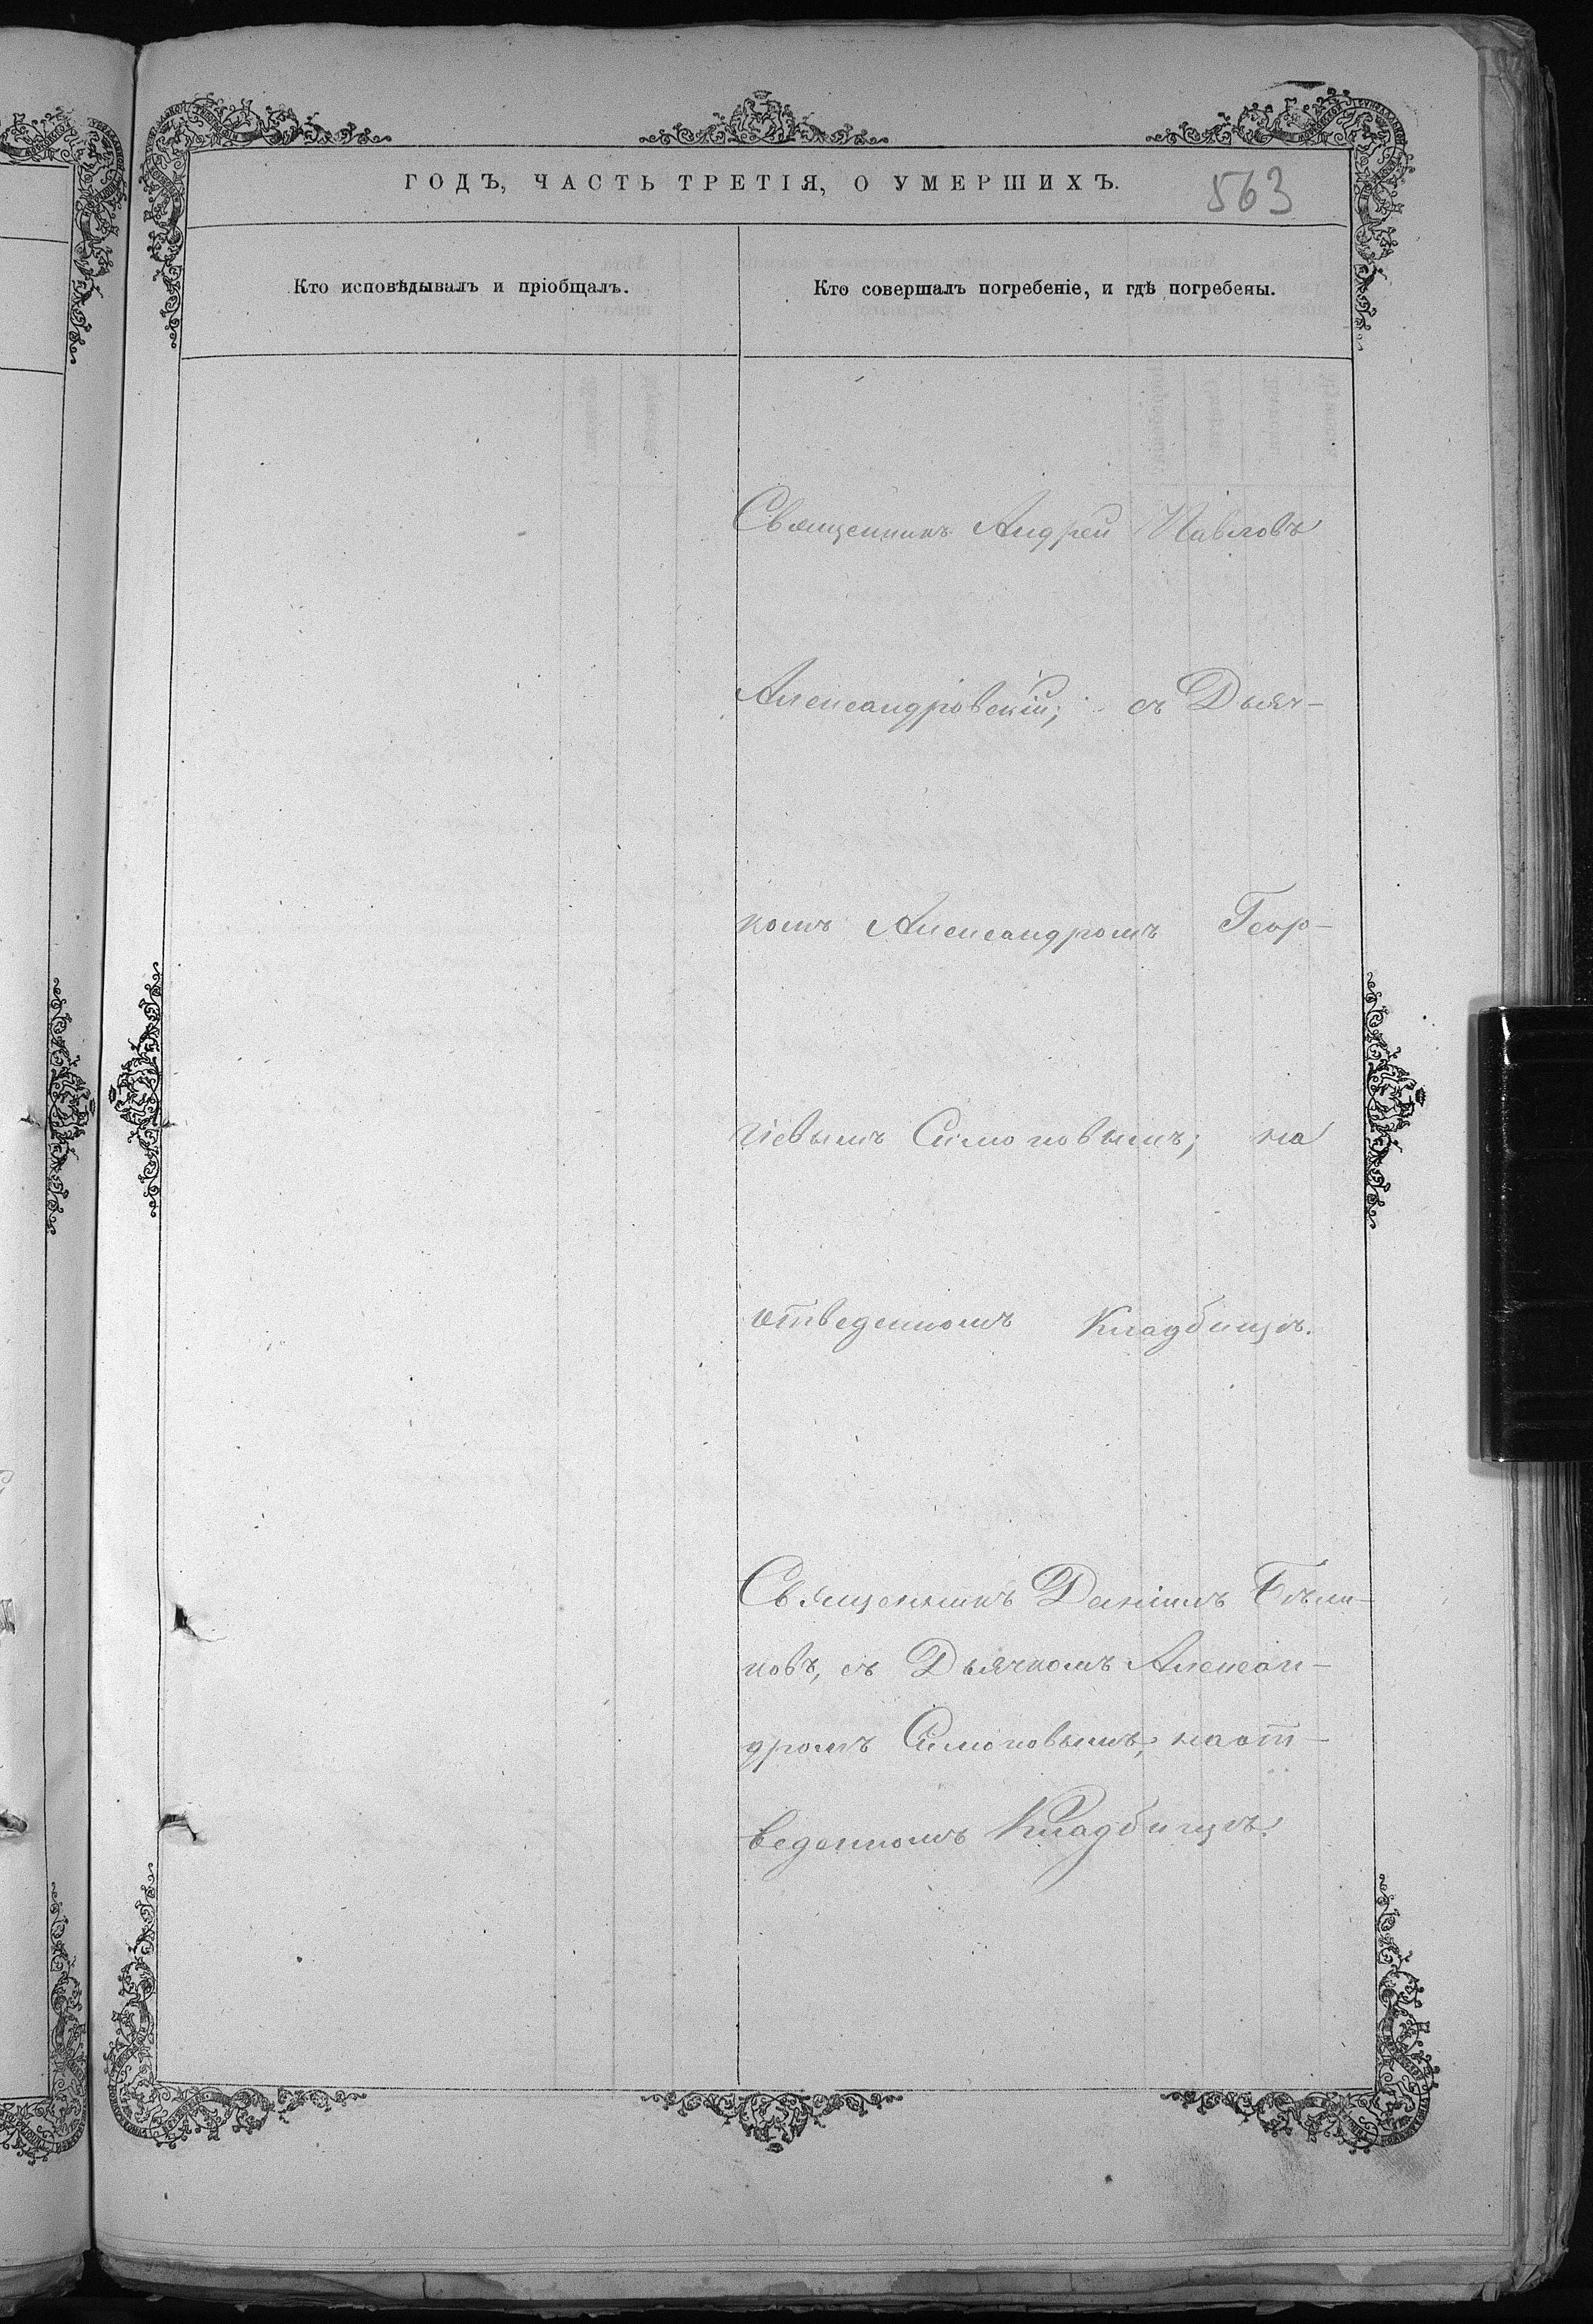 ГОДЪ, ЧАСТЬ ТРЕТІЯ, О УМЕРШИХЪ.
563
Кто исповѣдывалъ и пріобщалъ.
Кто совершалъ погребеніе, и гдѣ погребены.
Священникъ Андрей Павловъ
Александровскій; съ Дьяч-
комъ Александромъ Геор-
гіевымъ Симоновымъ; на
отведенномъ Кладбищѣ.
Священникъ Даніилъ Бѣли-
ковъ, съ Дьячкомъ Алексан-
дромъ Симоновымъ, на от-
веденномъ Кладбищѣ.